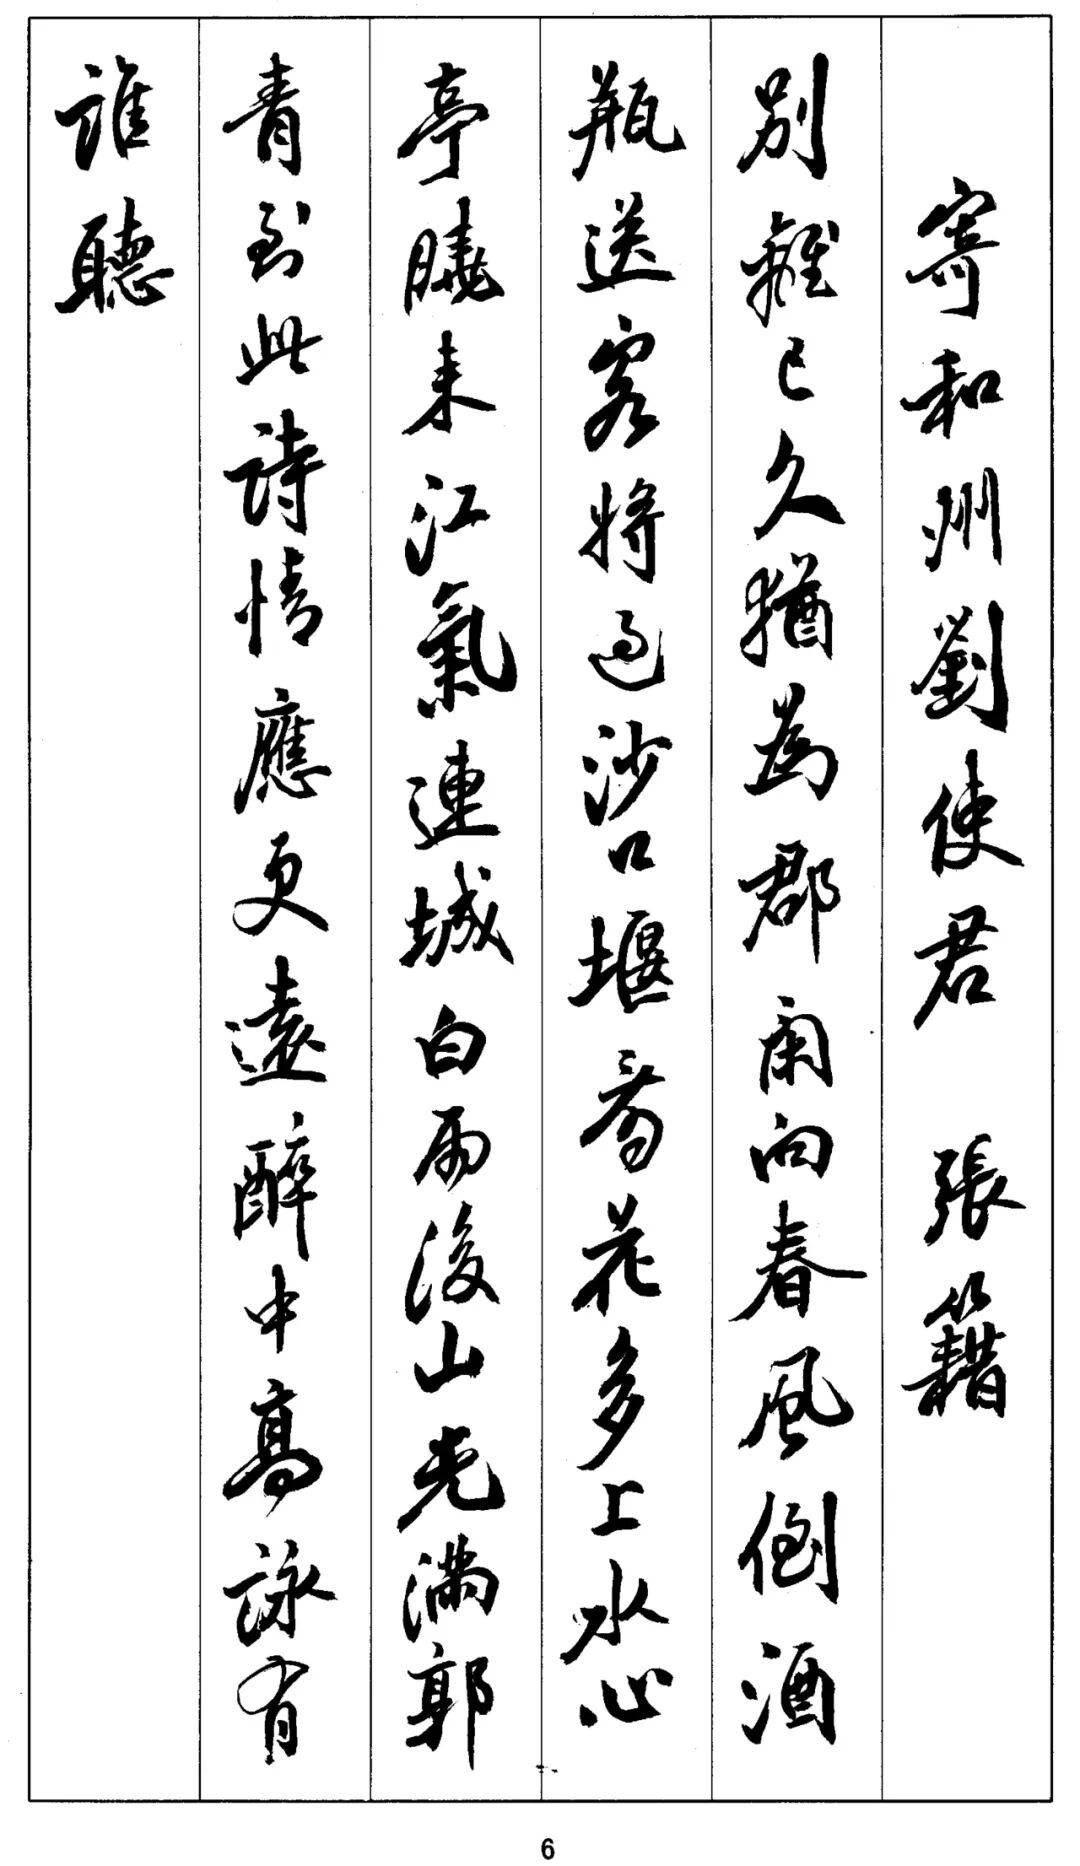 寄和州劉使君 張籍
別離已久猶為郡閑向春風倒酒
瓶送客將過沙口堰看花多上水心
亭曉来江氣連城白雨後山光滿郭
青到此詩情應更遠醉中高詠有
誰聽
6